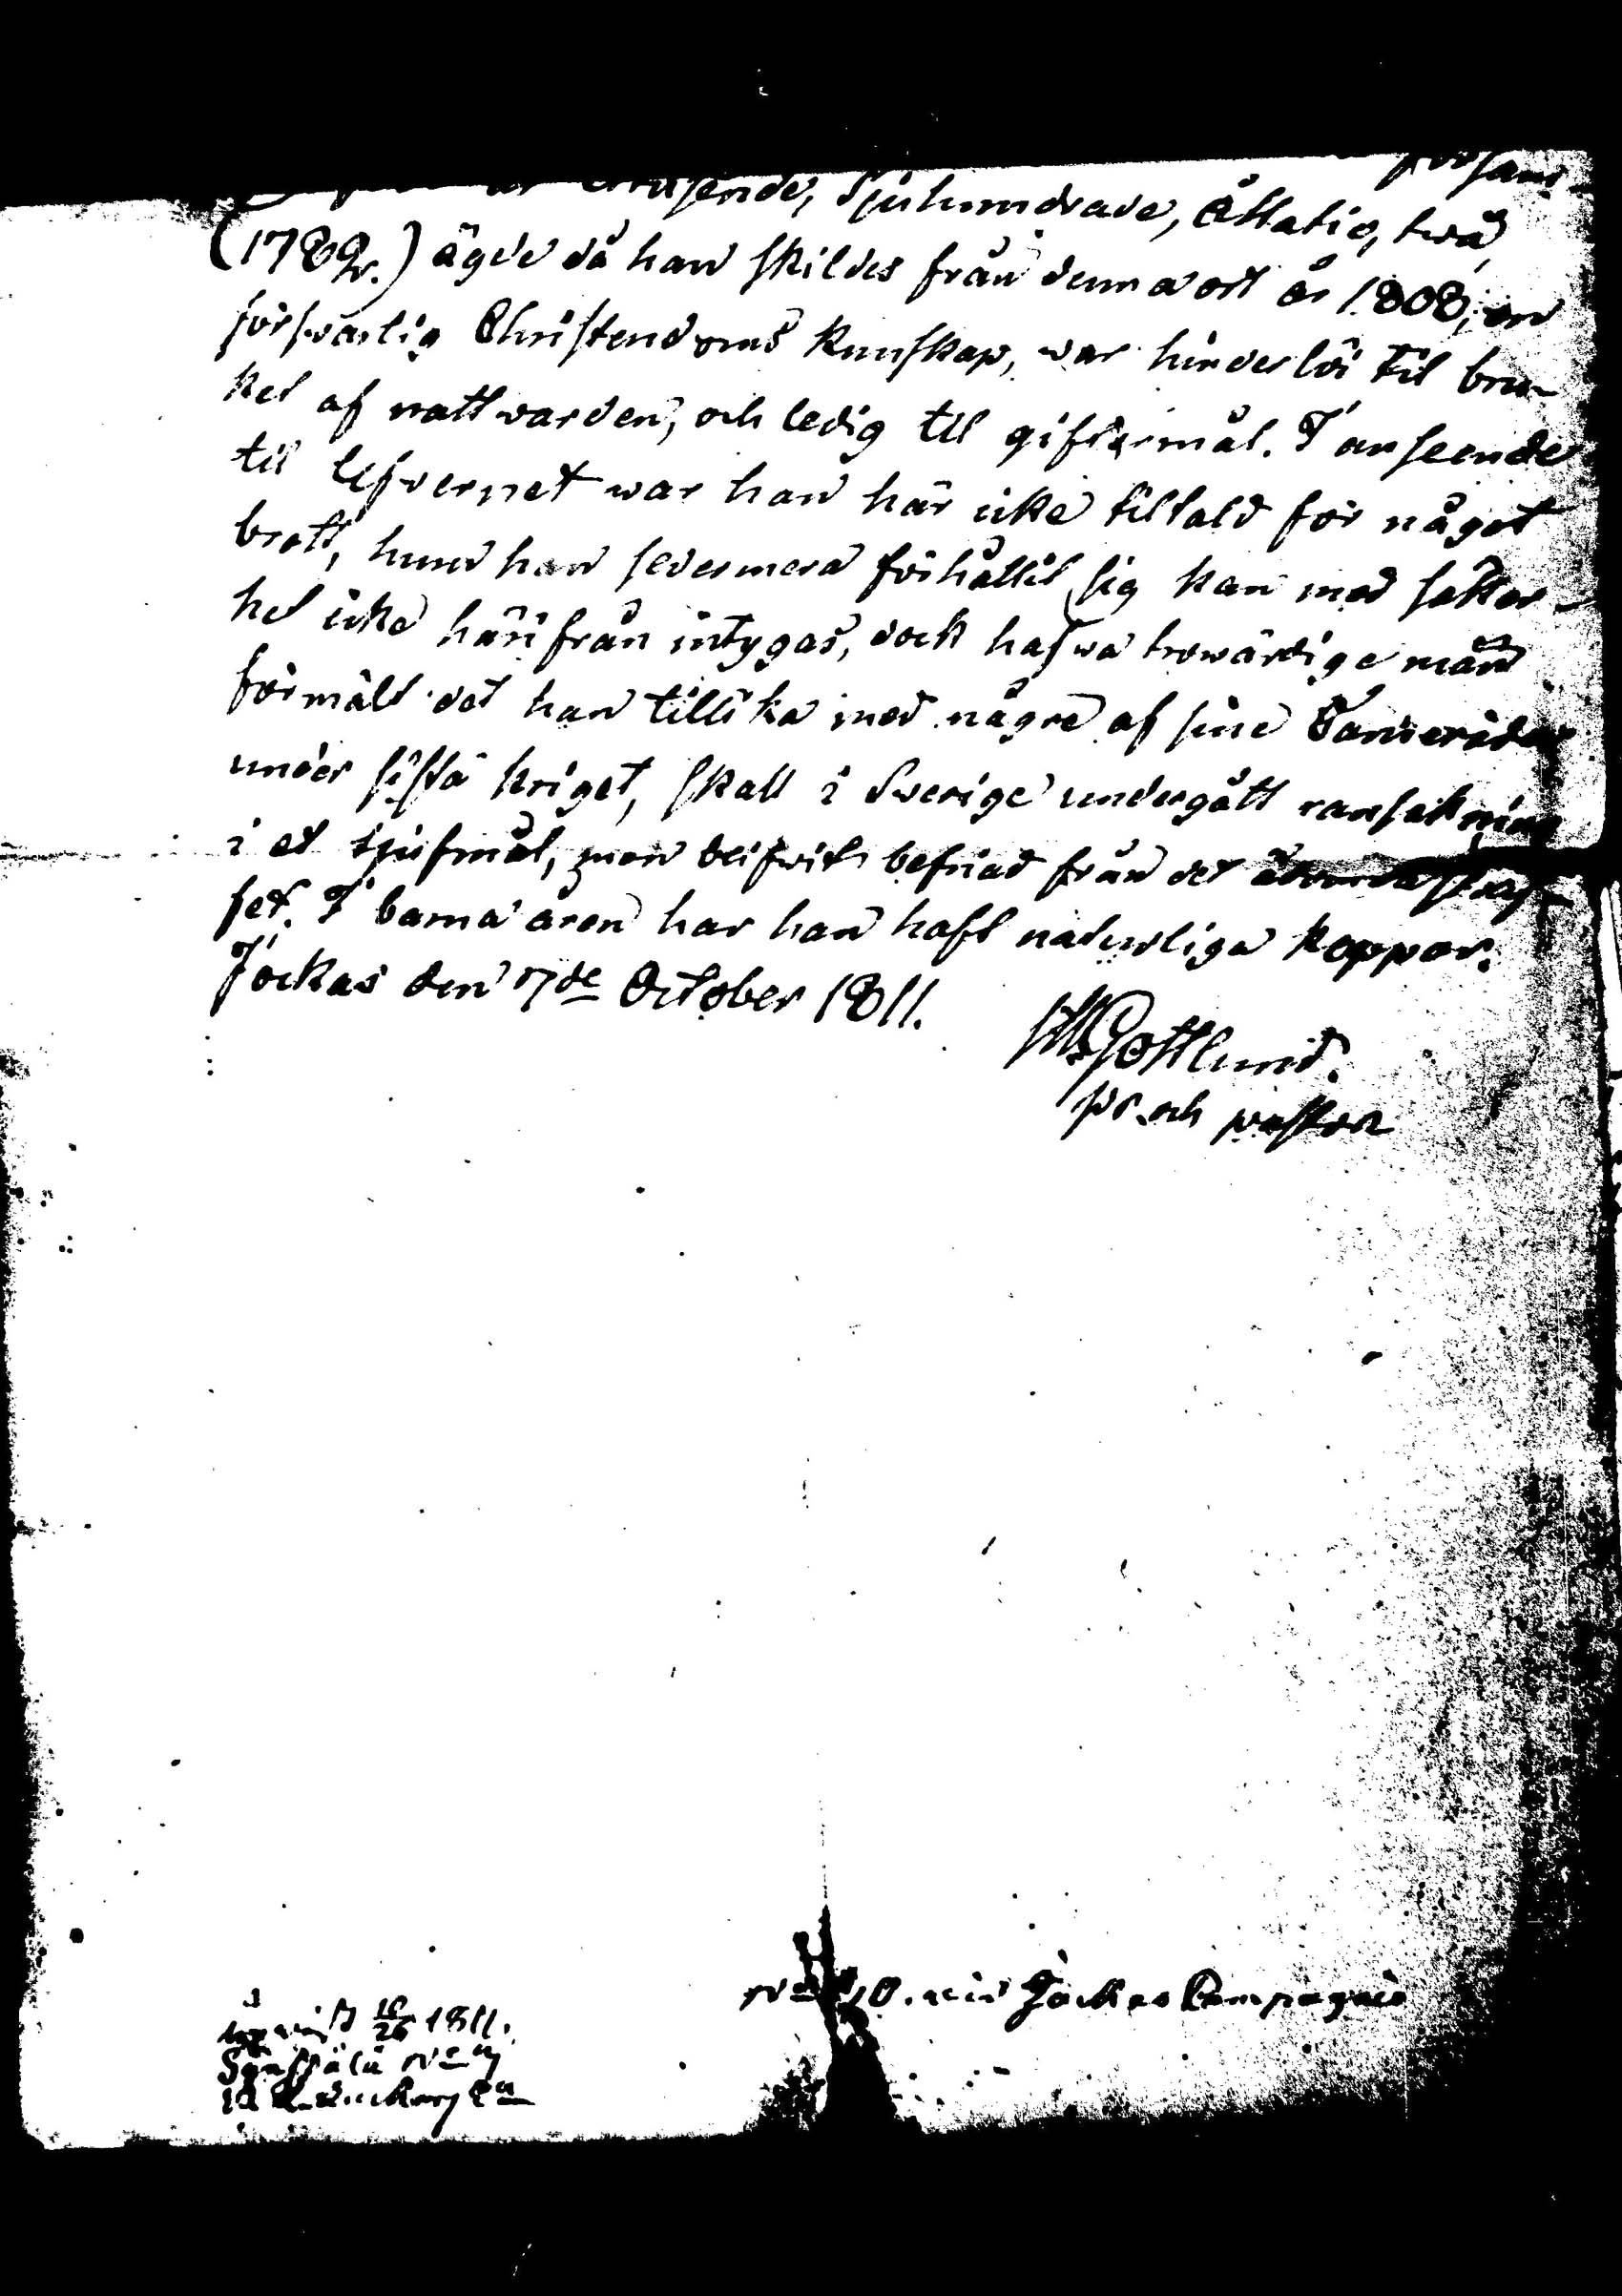 tusende, Sjuhundrade, Åttatio, twå,
(1782.) ägde då han skildes från denna ort år 1808, en
förswarlig Christendoms kunskap, war hinderlös til bru-
ket af nattwarden, och ledig til giftermål. I anseende
til lefvernet war han här icke tiltald för något
brott, huru han sedermera förhållit sig kan med säker-
het icke härifrån intygas, dock hafwa trowärdige män
förmält det han tillika med några af sine Camerader
under sista kriget, skall i Swerige undergått ransakning
i et tjufmål, men blifwit befriad från det
set. I barna åren har han haft naturliga koppor.
Jockas den 7de October 1811.
Gottlund.
pr. och pastor
No 10. wid Jockas Compagnie
1811.